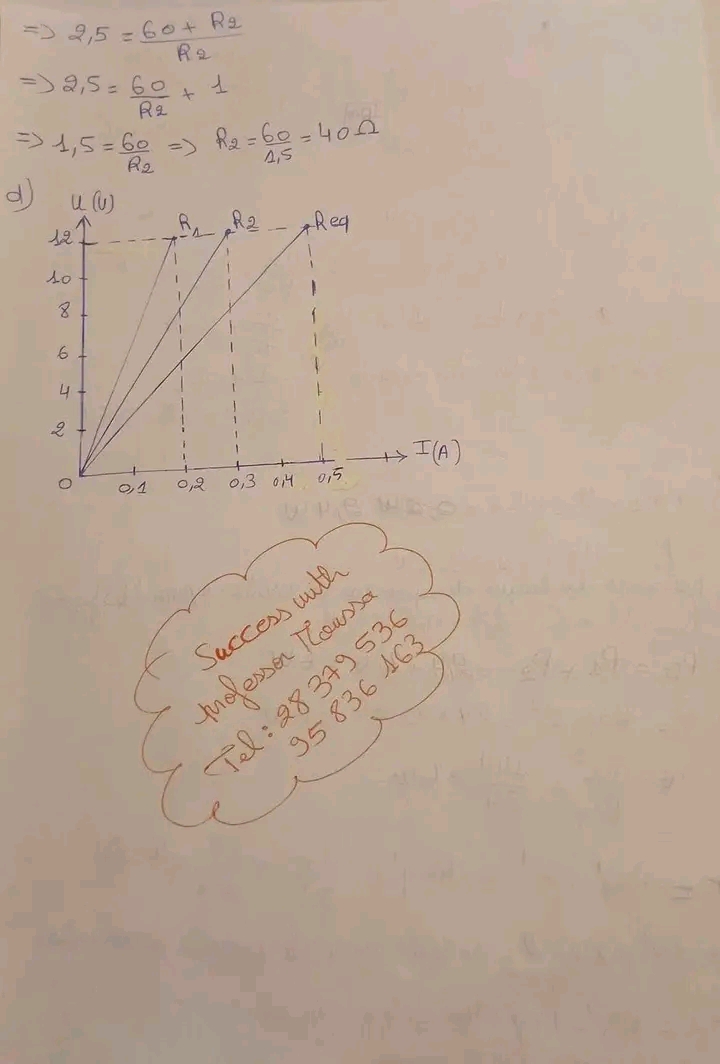 => 2,5 = (60 + R2)/R2
=> 2,5 = 60/R2 + 1
=> 1,5 = 60/R2 => R2 = 60/1,5 = 40 Ω
d) U (V)
R1 R2 Req
12
10
8
6
4
2
0 0,1 0,2 0,3 0,4 0,5 I(A)
Success with
professor Moussa
Tel: 28 379 536
95 836 163